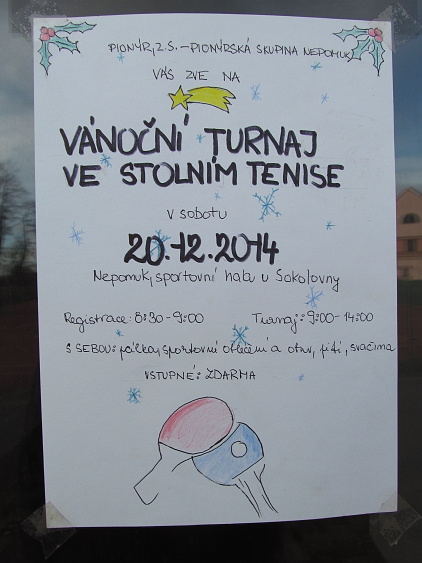 PIONÝR, Z.S. – PIONÝRSKÁ SKUPINA NEPOMUK
VÁS ZVE NA
VÁNOČNÍ TURNAJ
VE STOLNÍM TENISE
v sobotu
20.12.2014
Nepomuk, sportovní hala u Sokolovny
Registrace: 8:30-9:00 Turnaj: 9:00-14:00
S SEBOU: pálka, sportovní oblečení a obuv, pití, svačina
VSTUPNÉ: ZDARMA